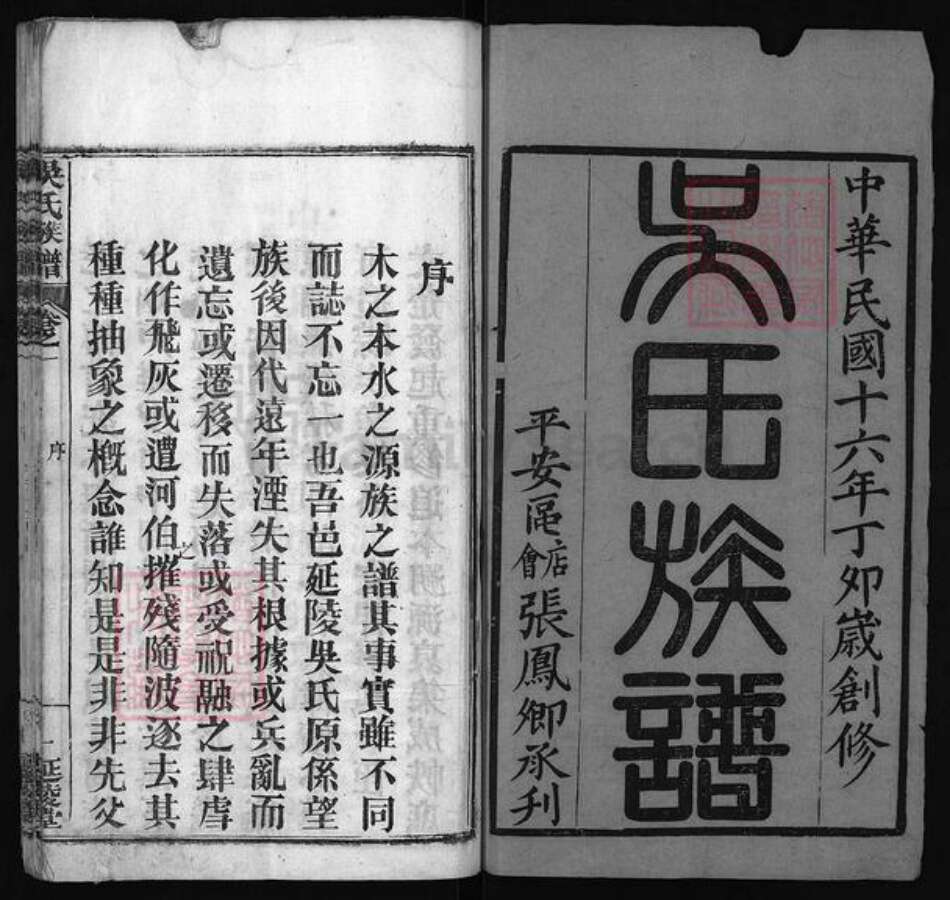 中華民國十六年丁卯歲創修
吳氏族譜
平安區店會張鳳卿承刋
序
木之本水之源族之譜其事實雖不同
而誌不忘一也吾邑延陵吳氏原係望
族後因代遠年湮失其根據或兵亂而
遺忘或遷移而失落或受祝融之肆虐
化作飛灰或遭河伯之摧残隨波逐去其
種種抽象之槪念誰知是是非非先父
吳氏族譜
卷一
序
一
延陵堂